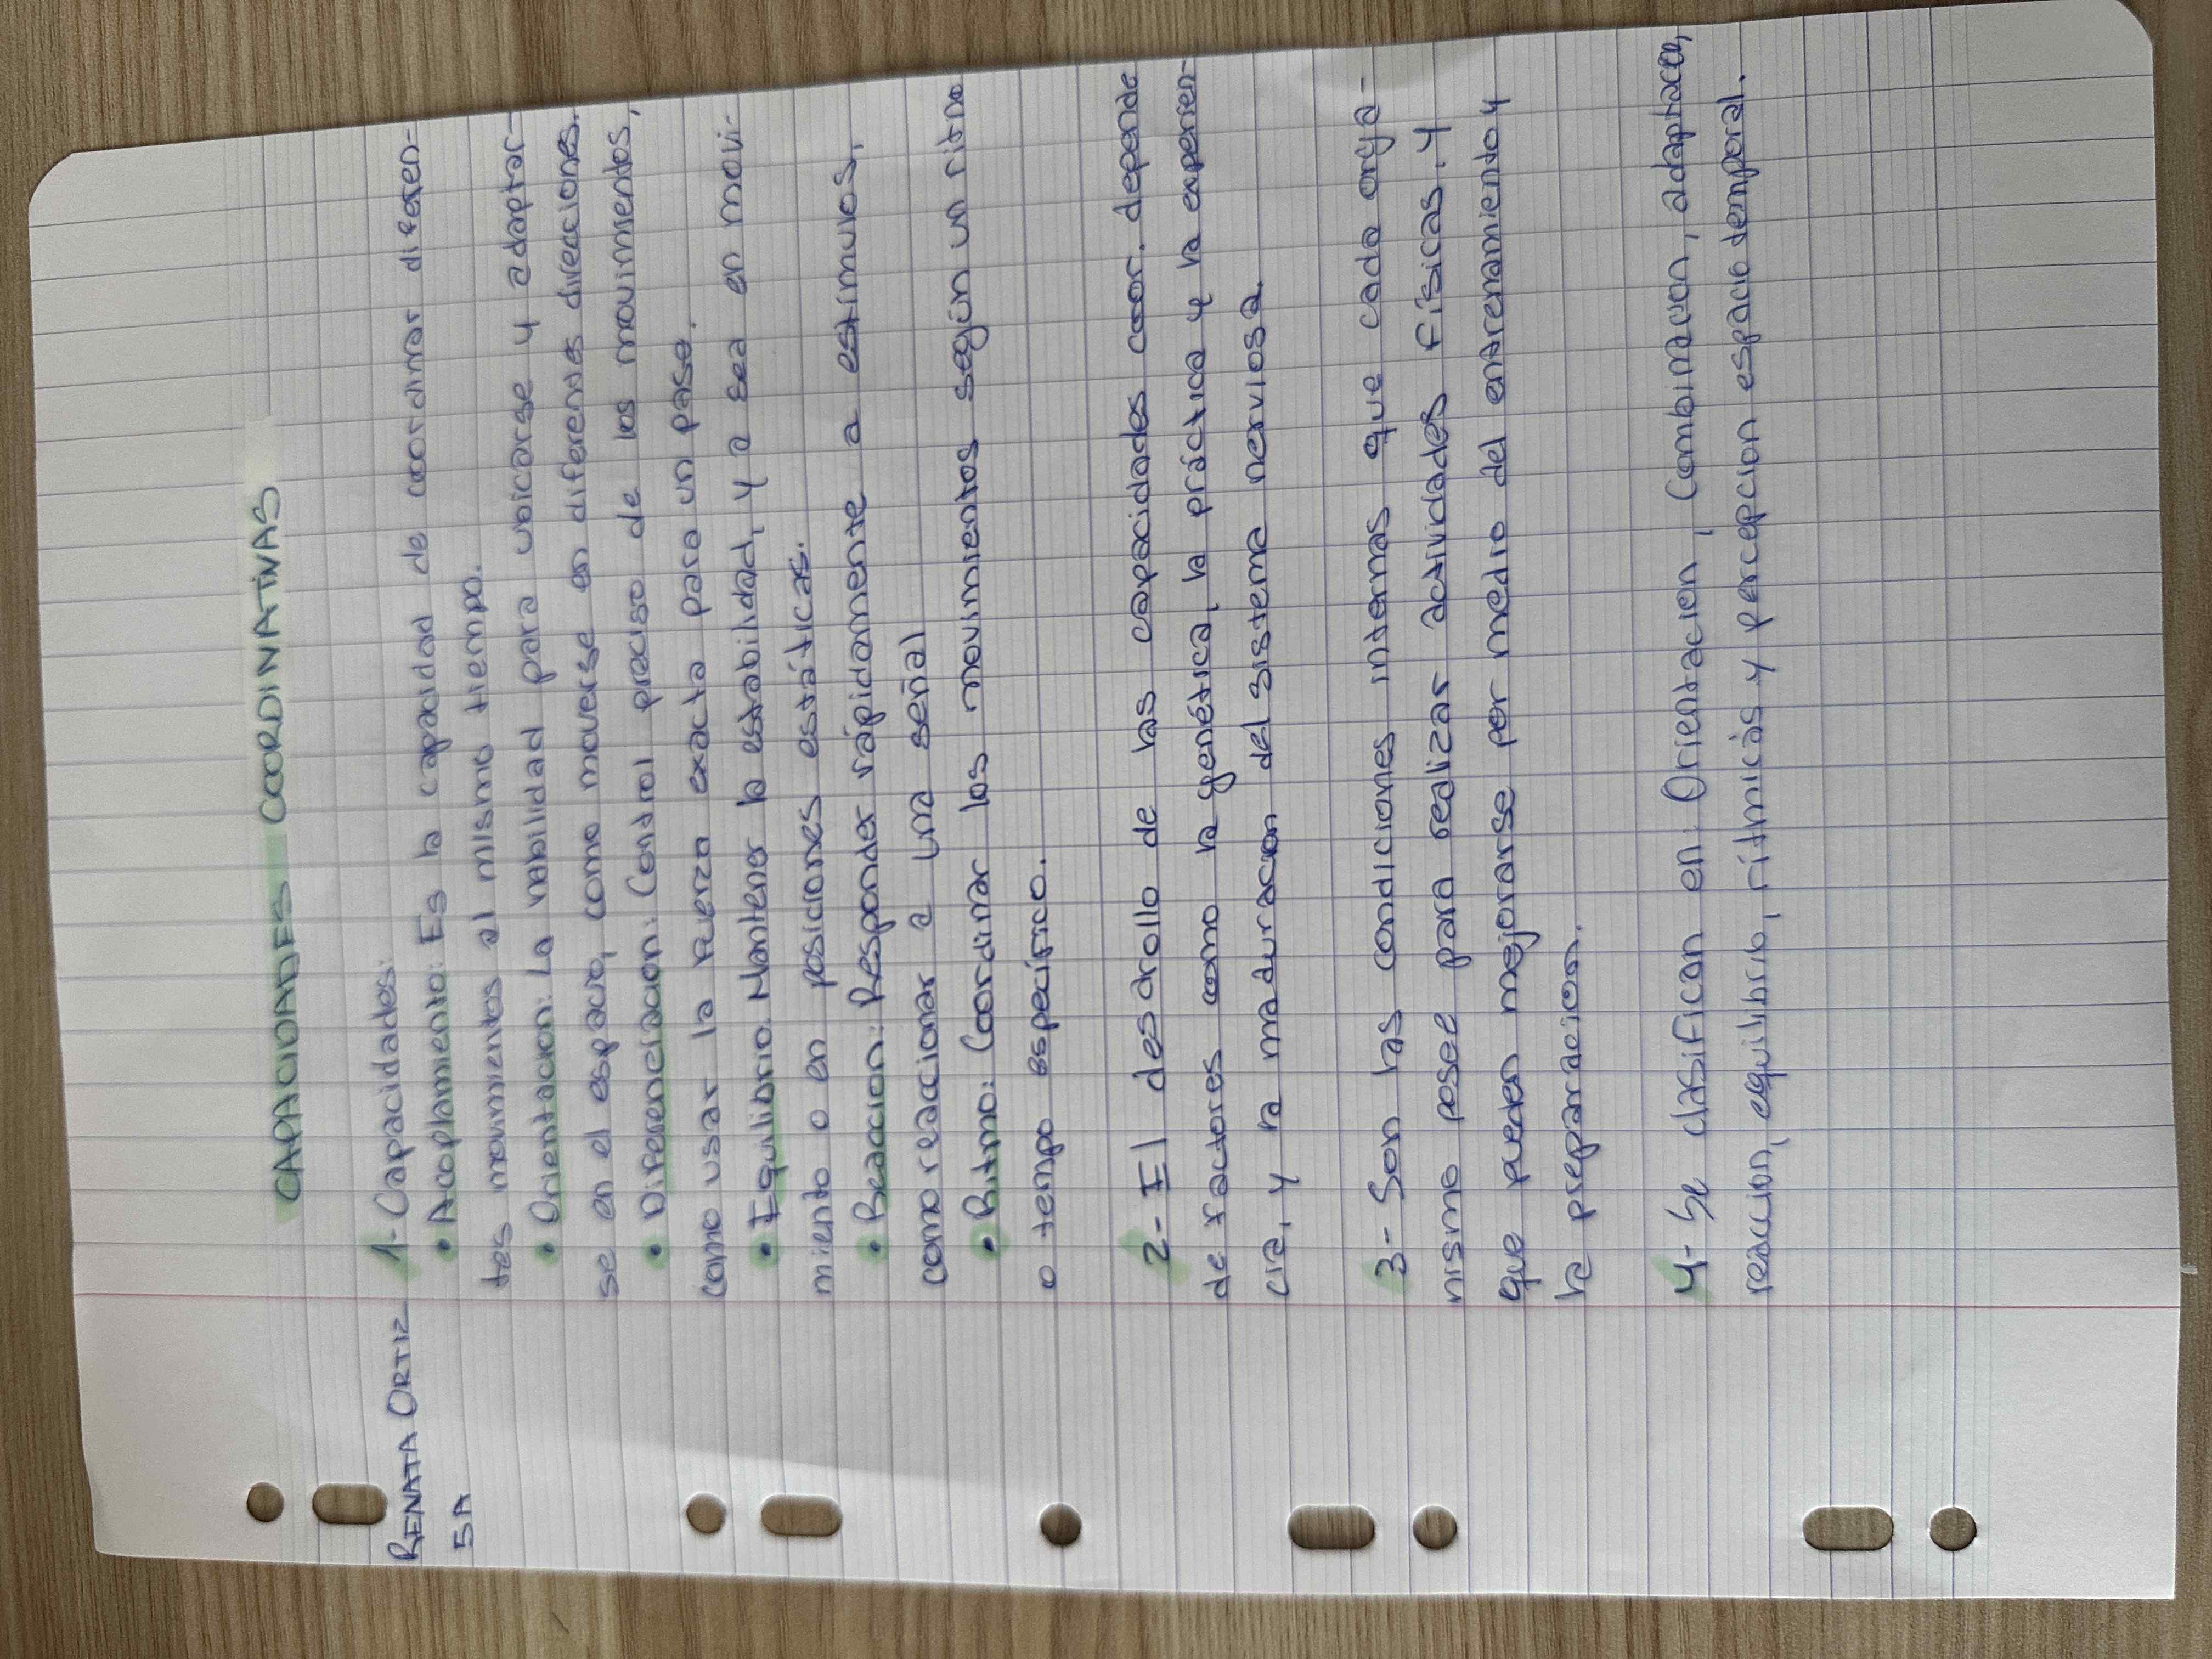 CAPACIDADES COORDINATIVAS
RENATA ORTIZ
5A
1- Capacidades:
• Acoplamiento: Es la capacidad de coordinar diferen-
tes movimientos al mismo tiempo.
• Orientacion: La habilidad para ubicarse y adaptar-
se en el espacio, como moverse en diferentes direcciones.
• Diferenciacion: Control preciso de los movimientos,
como usar la fuerza exacta para un pase.
• Equilibrio. Mantener la estabilidad, y a sea en movi-
miento o en posiciones estáticas.
• Reaccion: Responder rápidamente a estímulos,
como reaccionar a una señal
• Ritmo: Coordinar los movimientos según un ritmo
o tempo específico.
2- El desdrollo de las capacidades coor. depende
de factores como la genética, la práctica y la experien-
cia, y la maduracion del sistema nerviosa.
3- Son las condiciones internas que cada orga-
nismo posee para realizar actividades físicas. y
que pueden mejorarse por medio del entrenamiento y
la preparacion.
4- Se clasifican en: Orientacion, Combinacion, adaptacion,
reaccion, equilibrio, rítmicas y percepcion espacio temporal.